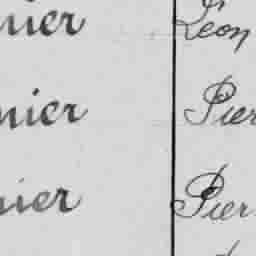 nier Léon
nier Pier
nier Pier